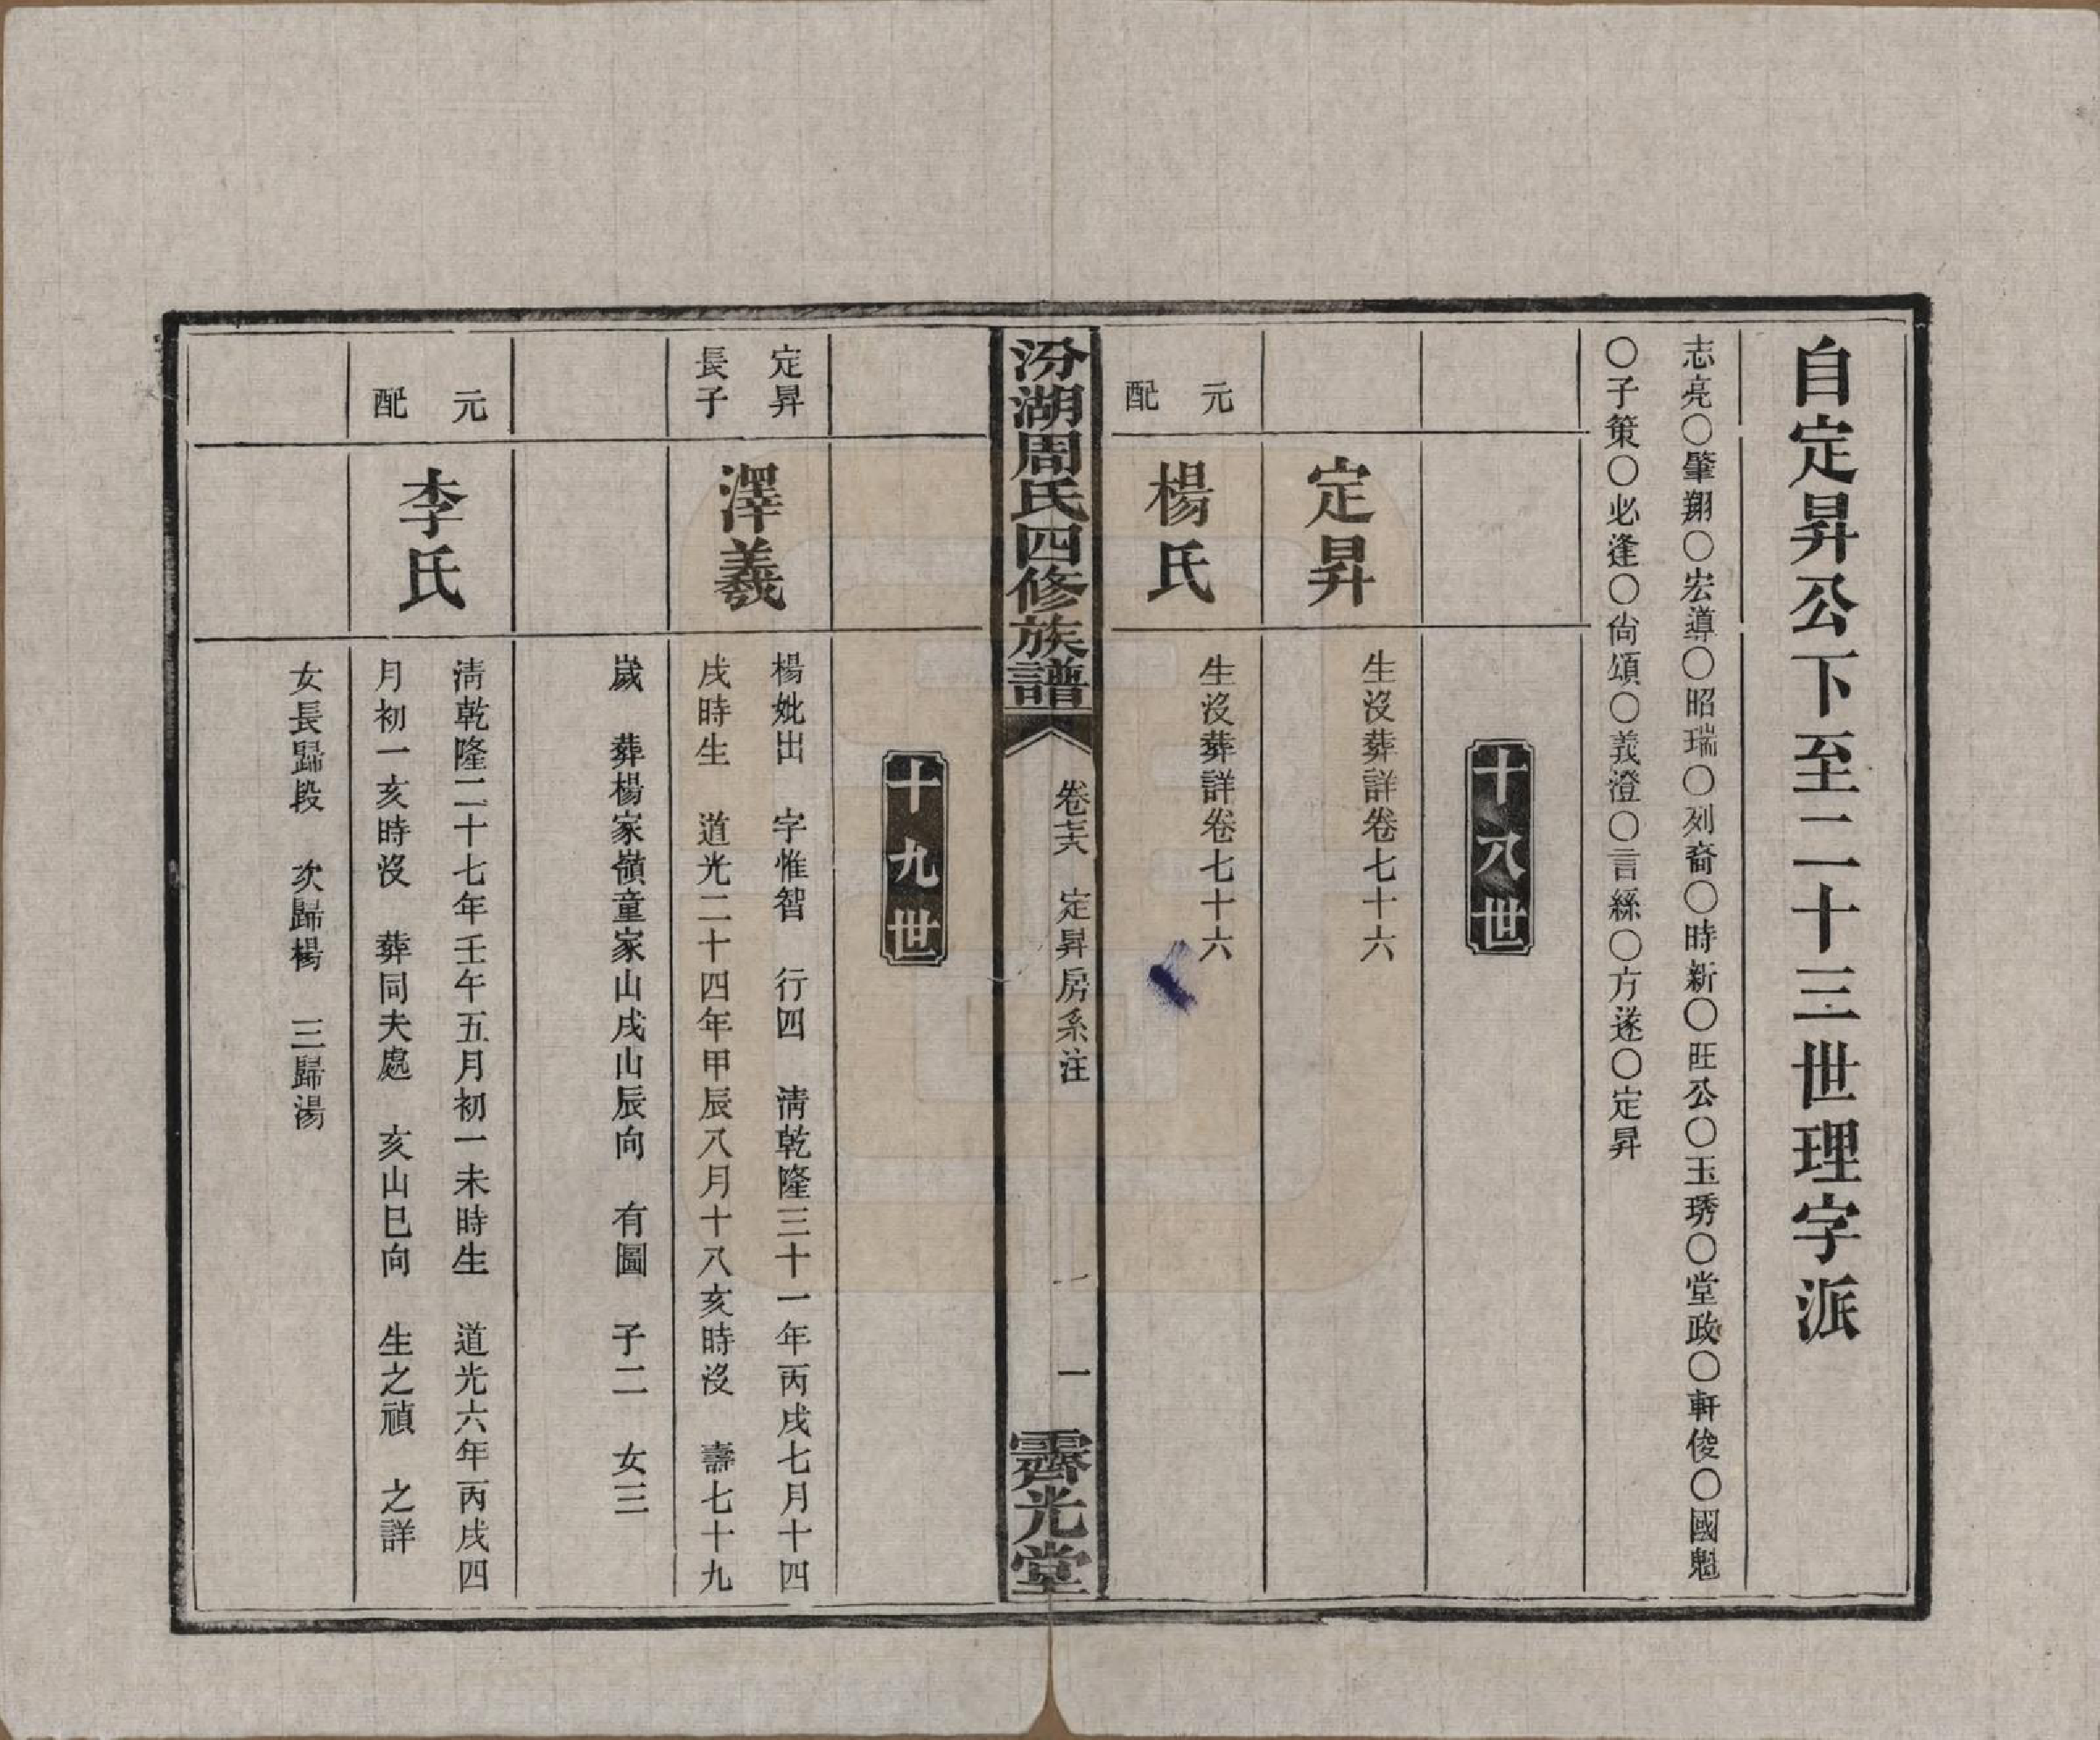 自定昇公下至二十三世理字派
志亮〇肇翔〇宏導〇昭瑞〇列裔〇時新〇旺公〇玉琇〇堂政〇軒俊〇國魁
〇子策〇必逢〇尙頌〇義澄〇言綵〇方遂〇定昇
十八世
定昇
生沒葬詳卷七十六
元配
楊氏
生沒葬詳卷七十六
汾湖周氏四修族譜
卷七十六
定昇房系注
一
霽光堂
十九世
定昇
長子
澤羲
楊妣出 字惟智 行四 淸乾隆三十一年丙戌七月十四
戌時生 道光二十四年甲辰八月十八亥時沒 壽七十九
嵗 葬楊家嶺童家山戌山辰向 有圖 子二 女三
元配
李氏
淸乾隆二十七年壬午五月初一未時生 道光六年丙戌四
月初一亥時沒 葬同夫處 亥山巳向 生之禎 之詳
女長歸段 次歸楊 三歸湯